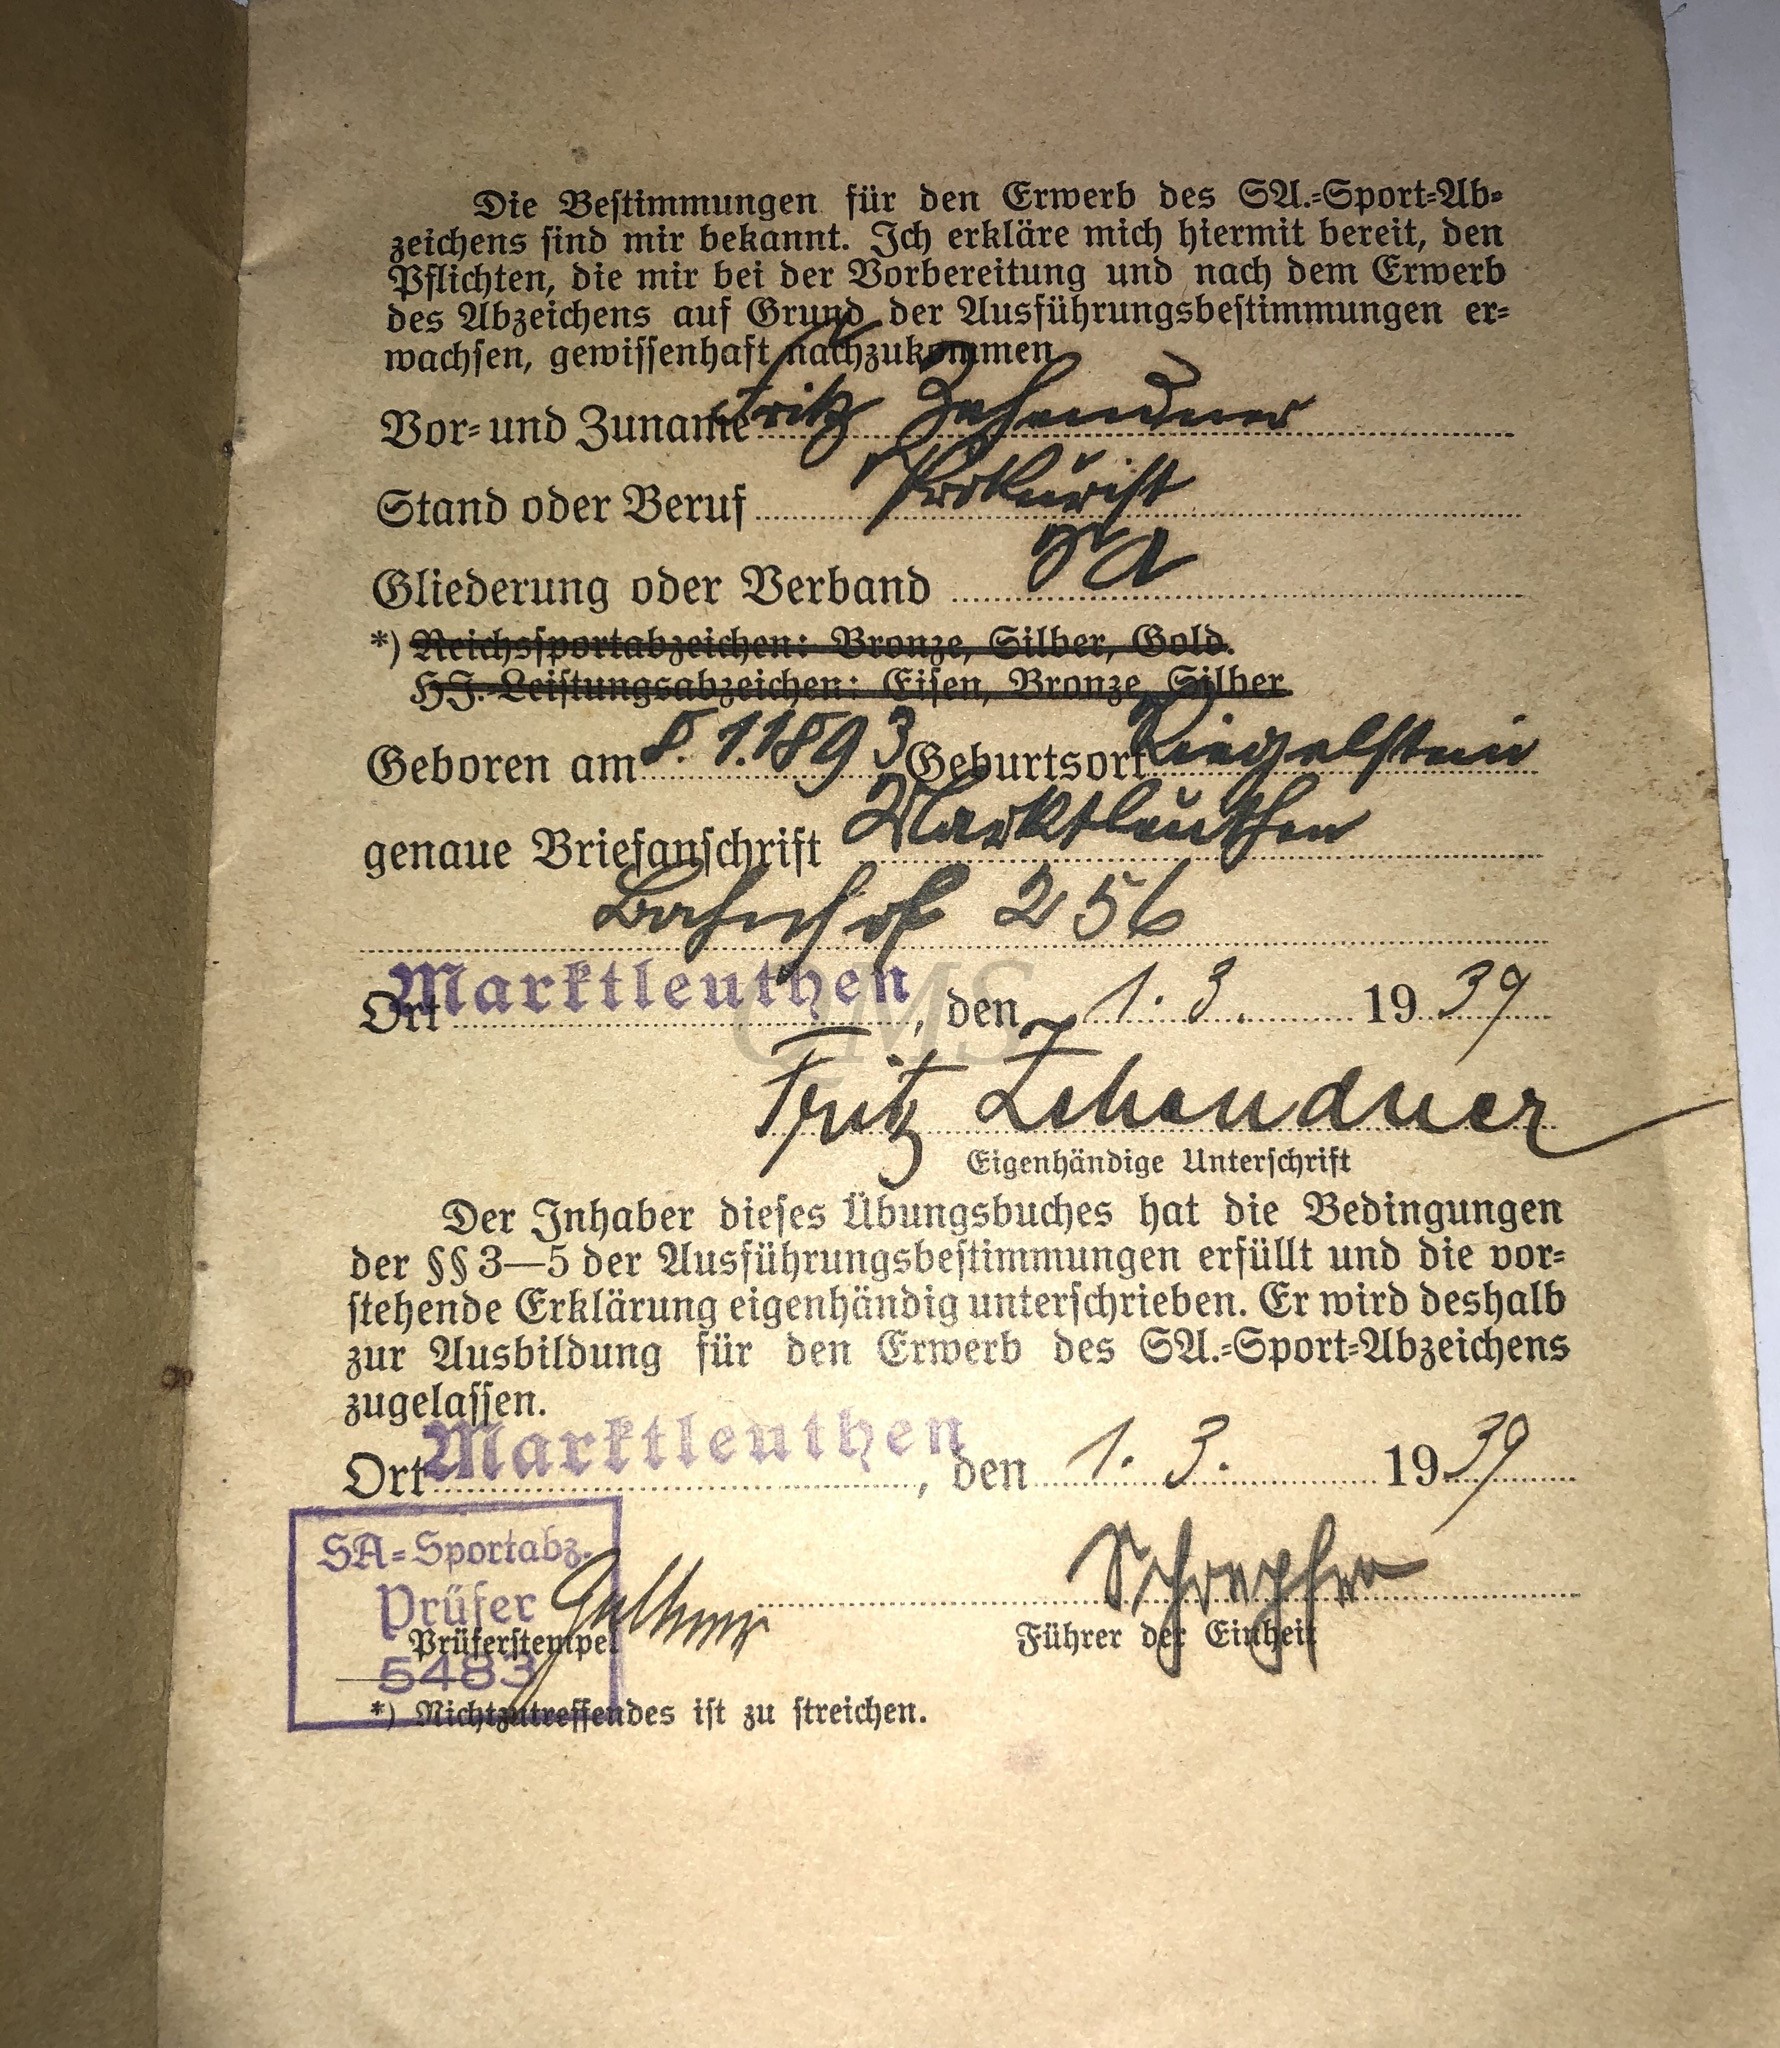 Die Bestimmungen für den Erwerb des SA.-Sport-Ab-
zeichens sind mir bekannt. Ich erkläre mich hiermit bereit, den
Pflichten, die mir bei der Vorbereitung und nach dem Erwerb
des Abzeichens auf Grund der Ausführungsbestimmungen er-
wachsen, gewissenhaft nachzukommen
Vor- und Zuname Fritz Zehendner
Stand oder Beruf Prokurist
Gliederung oder Verband SA
*) Reichssportabzeichen: Bronze, Silber, Gold.
HJ.-Leistungsabzeichen: Eisen, Bronze, Silber
Geboren am 8. 1. 1893 Geburtsort Riegelstein
genaue Briefanschrift Marktleuthen
Bahnhof 256
Ort Marktleuthen, den 1. 3. 1939
GMS
Fritz Zehendner
Eigenhändige Unterschrift
Der Inhaber dieses Übungsbuches hat die Bedingungen
der §§ 3—5 der Ausführungsbestimmungen erfüllt und die vor-
stehende Erklärung eigenhändig unterschrieben. Er wird deshalb
zur Ausbildung für den Erwerb des SA.-Sport-Abzeichens
zugelassen.
Ort Marktleuthen, den 1. 3. 1939
SA-Sportabz.
Prüfer
Prüferstempel
Führer der Einheit
5483
*) Nichtzutreffendes ist zu streichen.